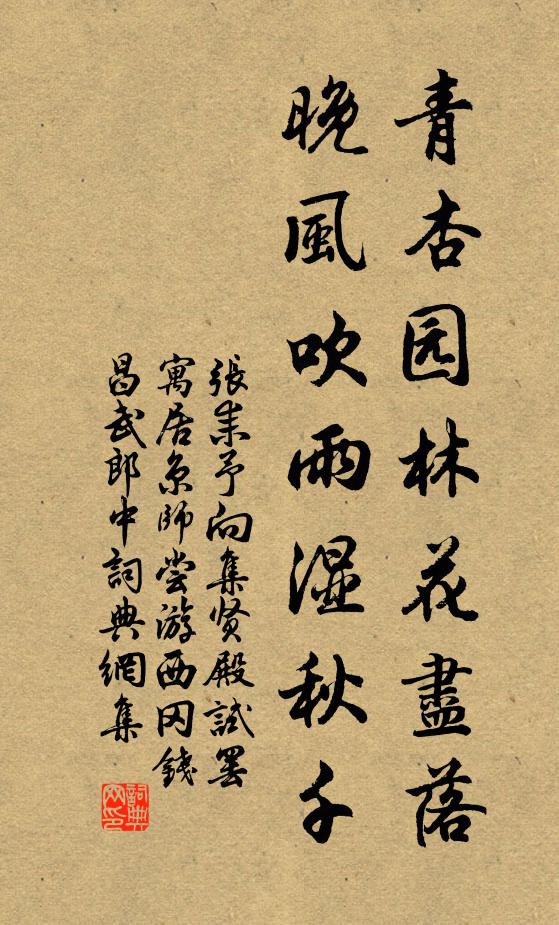 青杏园林花盡落
晚風吹雨濕秋千
張耒予向集贤殿試罢
寓居京師尝游西冈钱
昌武郎中詞典網集
詞典
网印